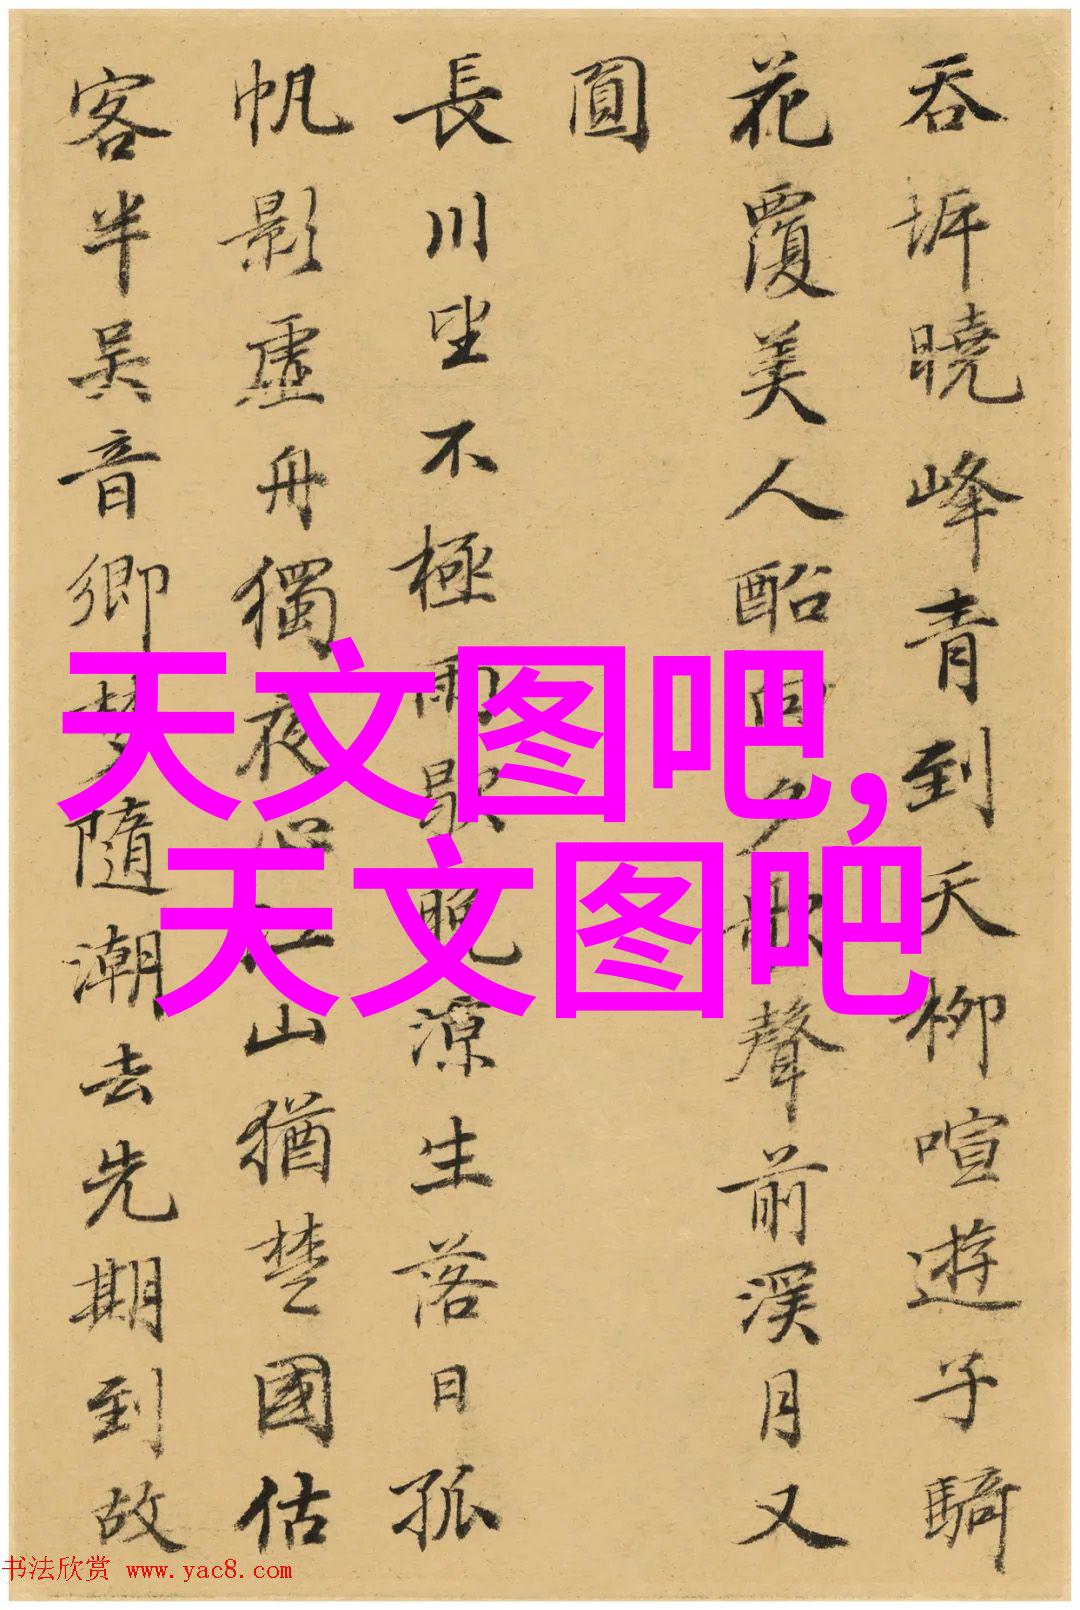 吞坼曉峰青到天柳喧遊子騎
花覆美人酩回夕歌聲前溪月又
圓
長川坐不極雨歇晚涼生落日孤
帆影虛舟獨夜心江山猶楚國估
客半吴音鄉梦隨潮去先期到故
天文图吧,
天文图吧
书法欣赏 www.yac8.com